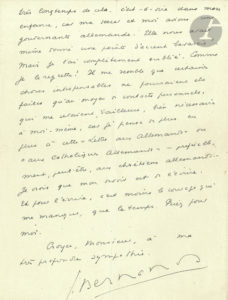 très longtemps de cela, c'est-à-dire dans mon
enfance, car ma sœur et moi avions une
gouvernante allemande. Elle nous avait
même donné une pointe d'accent bavarois
Mais je l'ai complètement oublié. Comme
je le regrette! Il me semble que certaines
choses indispensables ne pourraient être
faites qu'au moyen de contacts personnels,
qui me seraient, d'ailleurs, bien nécessaires
à moi-même, car je pense de plus en
plus à cette «Lettre aux Allemands» ou
«aux Catholiques Allemands» –
peut-être, aux chrétiens allemands...
Je crois que mon
Et pour l'écrire, c'est moins le courage qui
me manque, que le temps. Priez pour
moi.
Croyez, Monsieur, à ma
très profonde sympathie.
GBernanos